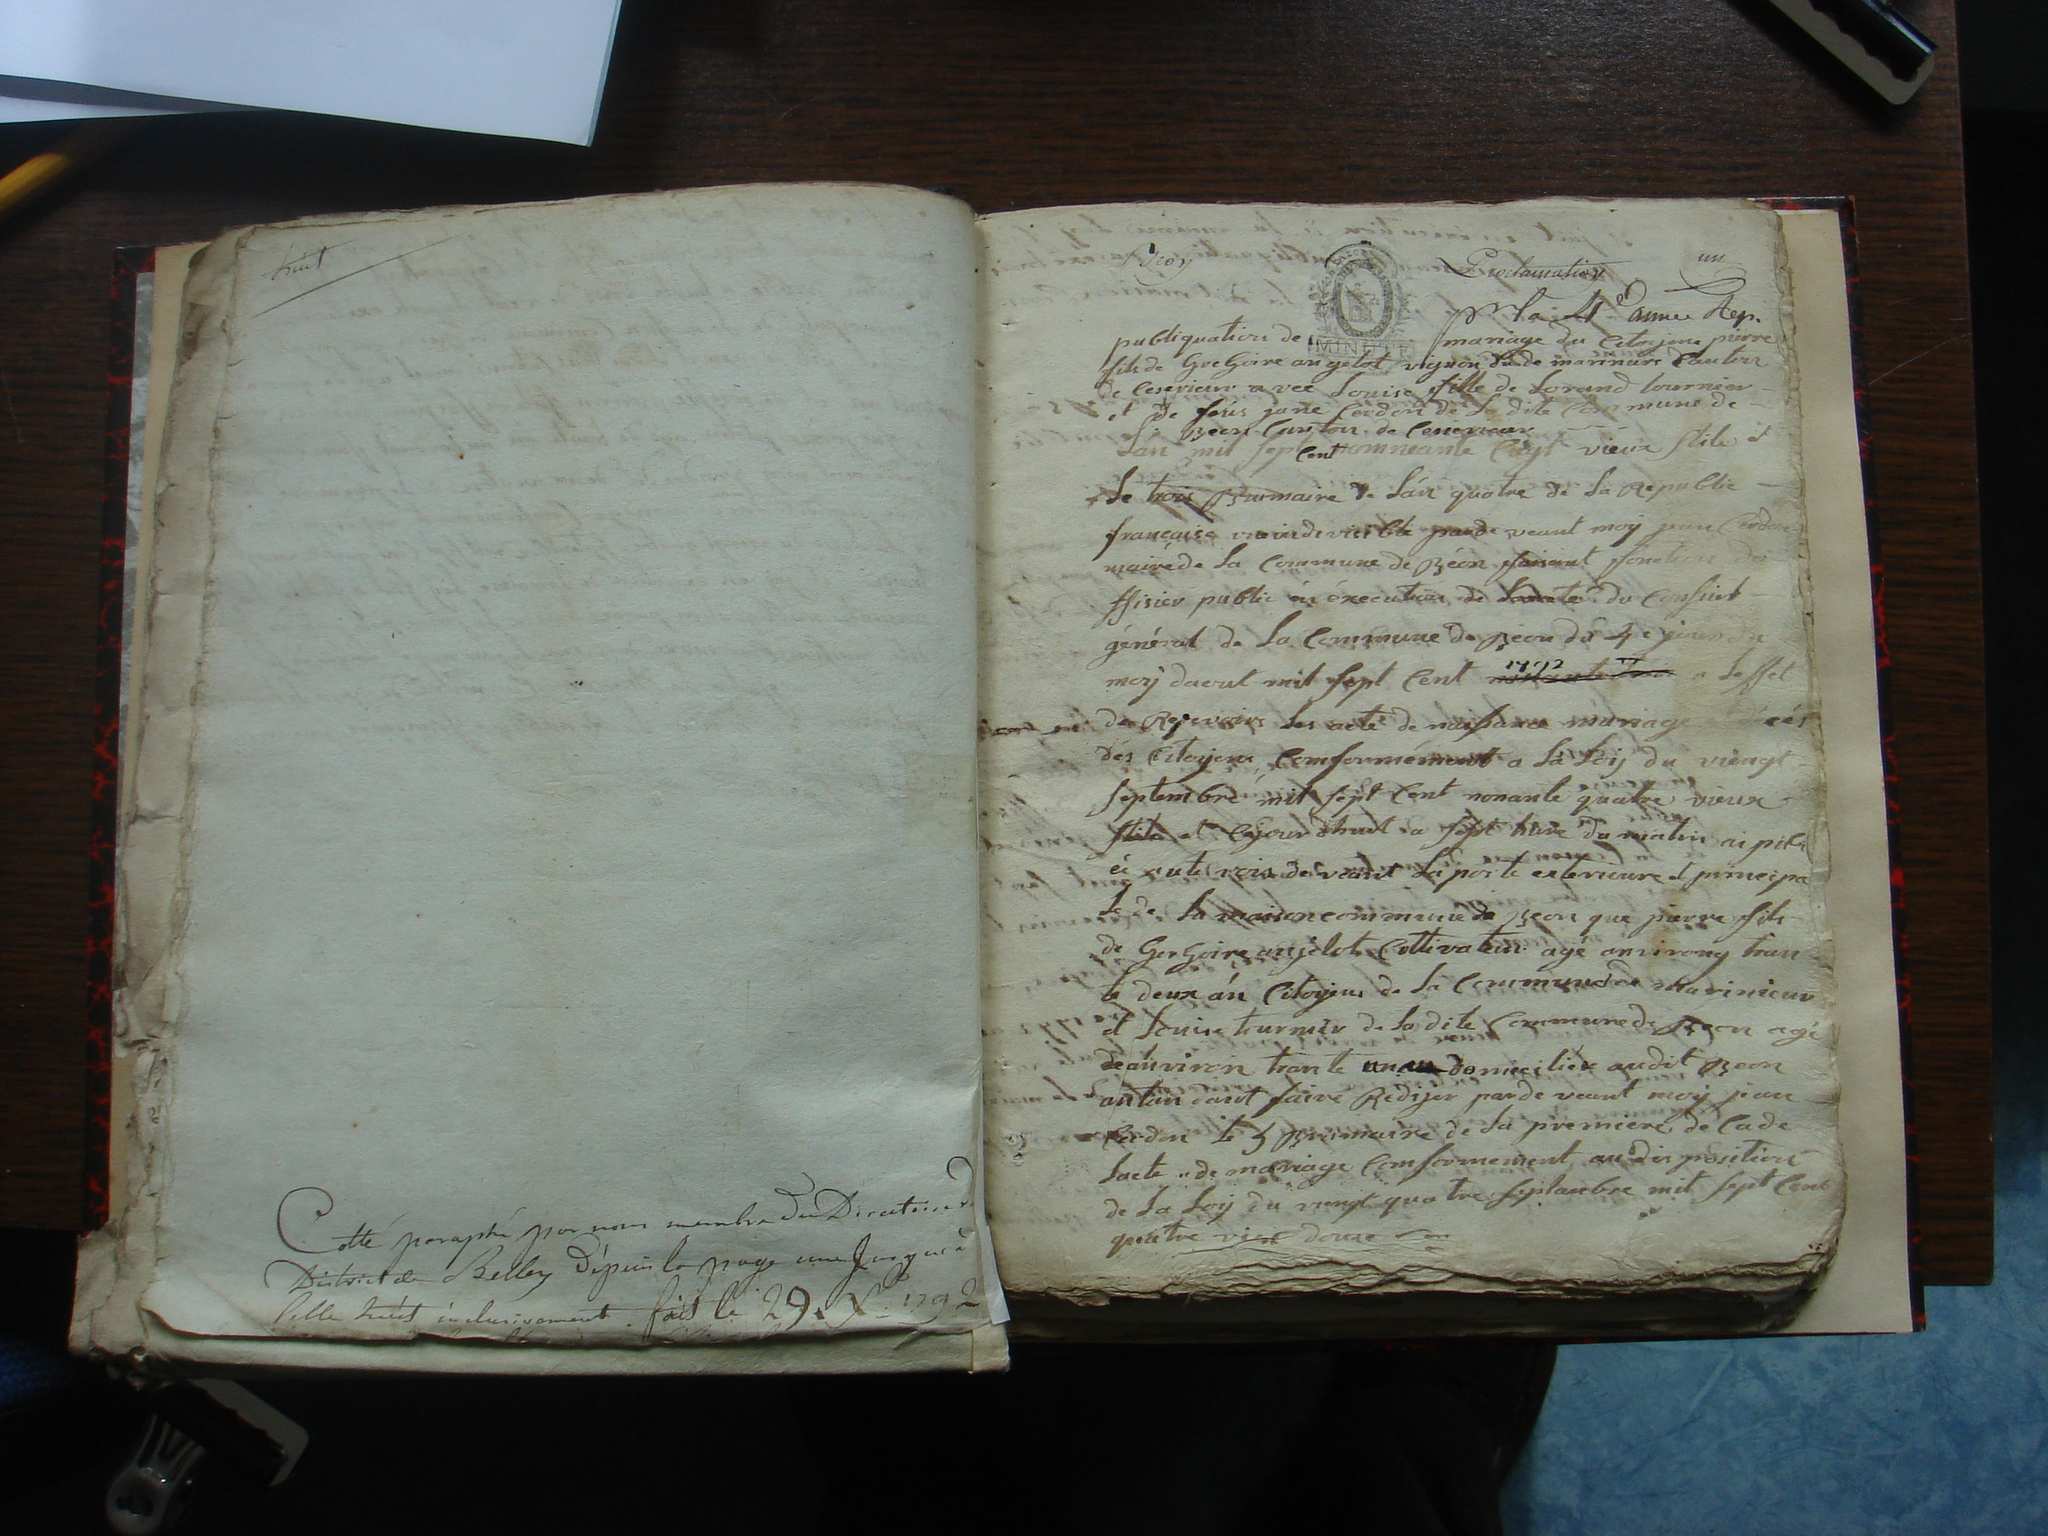 huit
Cotté paraphé par nous membre du Directoire d
District de Belley Depuis la page une Jusque à
celle huit inclusivement. fait le 29. Xbre 1792
Béon
Proclamation
un
pr la 4e année Rep.
publiquation de mariage du Citoyens pierre
fils de Gregoire angelot vignon de de marinieur Canton
de Ceserieux avec Louise fille de Lorand tournier
et de feus jane Cerdon de la dite Commune de
Béon Canton de Ceserieux
Lan mil sept cent nonneante vieux stile et
Le trois Brumaire de Lan quatre de La Republic
francaise une indivisible parde veant moy jean Cerdon
maire de La Commune de Béon faisant fonction do
ffisier public en execution de du Conseil
général de La Commune de Béon du 4e jour du
moy daout mil sept Cent 1792 a Leffet
de Resevoire Les acte de naissance mariage décés
dés Citoyens Comformément a La Loy du viengt
septembre mil sept Cent nonante quatre vieux
stile et Cejourdhuit a sept hure du matin ai publ
éé aute voix de veant La porte exterieure et principa
le de La maison commune de Béon que pierre fils
de Gregoire anjelot Cultivateur agé anvirong tran
te deux án Citoyens de La Commune de marinieux
et Louise turnier de La dite Commune de Béon agé
de anviron trante un domicilier audit Béon
antandant faire Rédijer parde veant moy jean
Cerdon le 5 Brumaire de La premiere de Cade
Lacte de mariage Comformement au disposition
de La Loy du viengt quatre septambre mil sept Cent
quatre vien douze
MINUTE